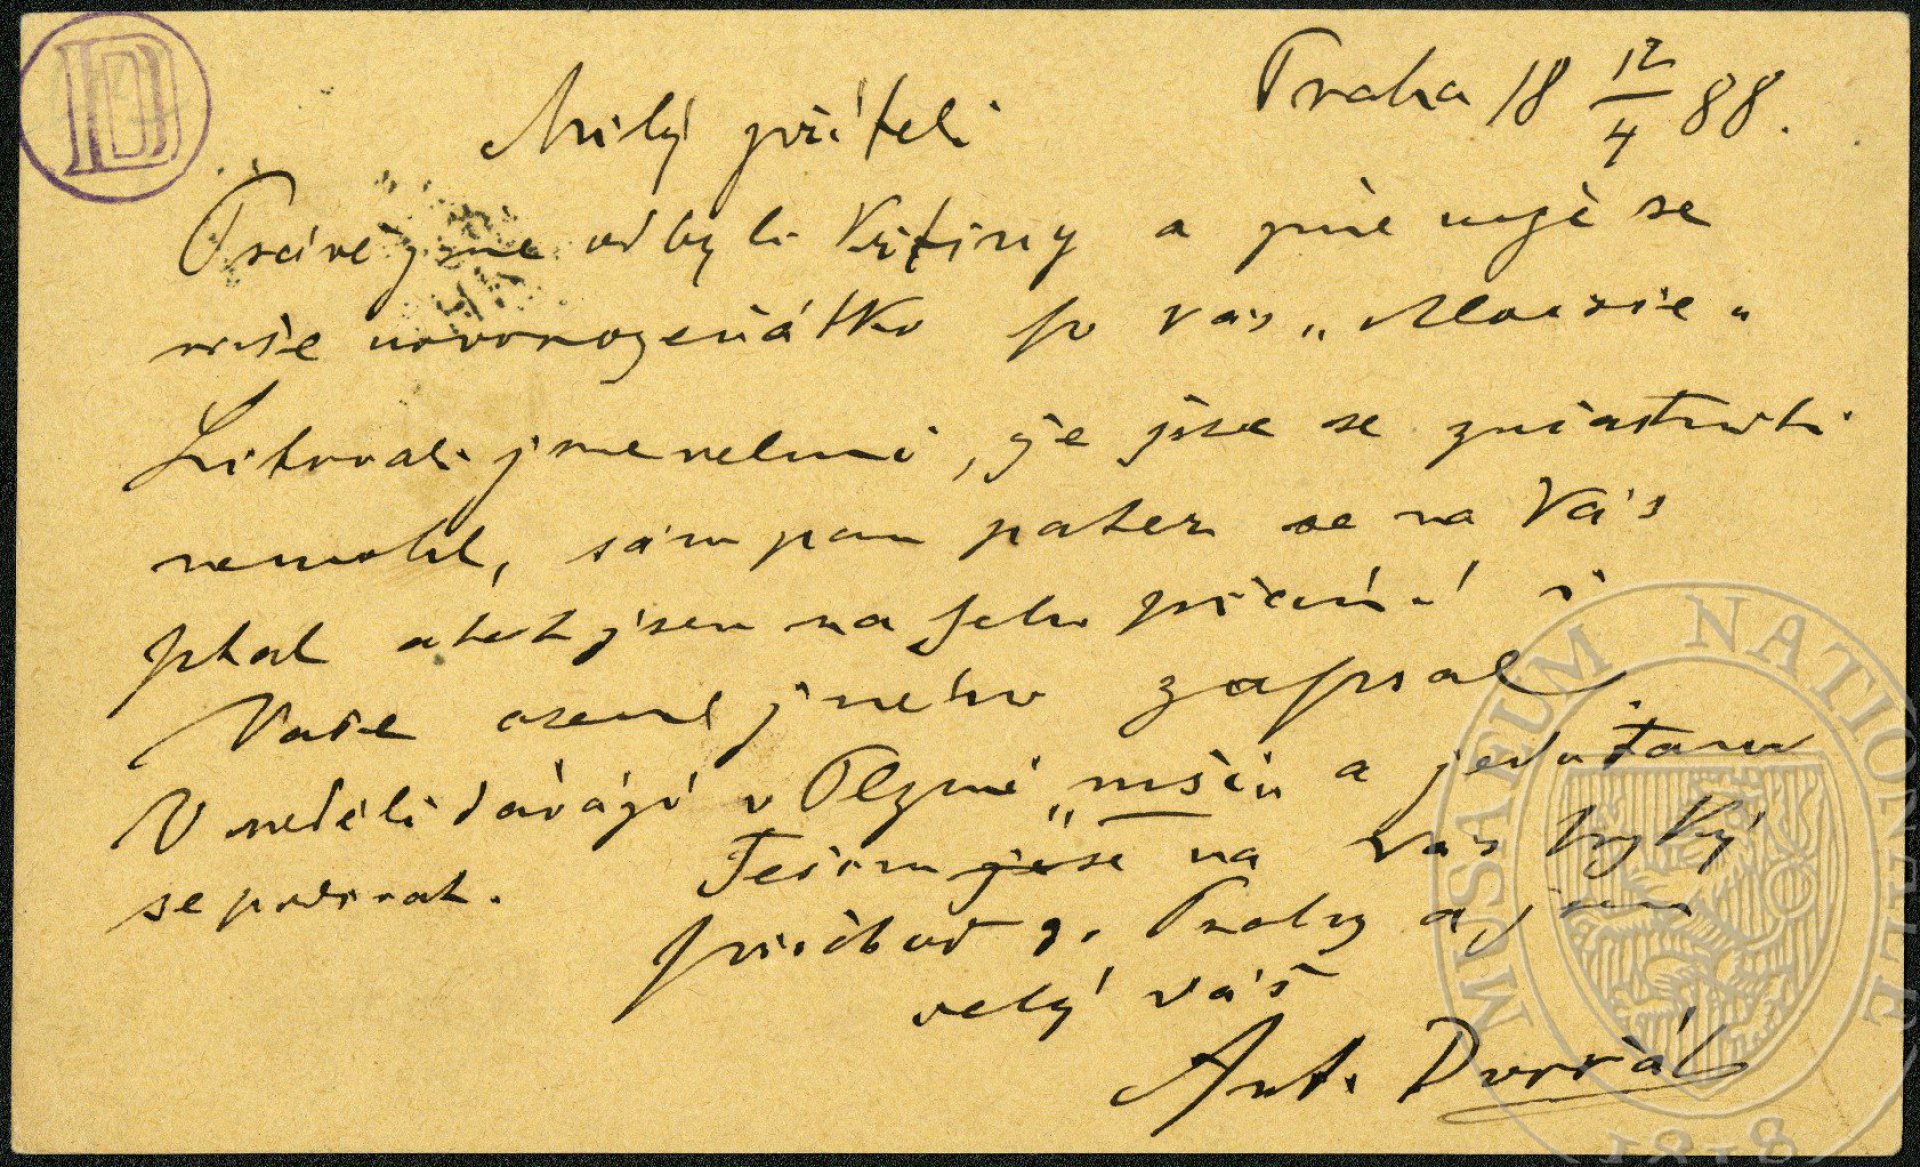 DD
Praha 18 12/4 88.
Milý příteli
Právě jsme odbyli křtiny a jmenuje se
naše novorozeňátko po Vás „Aloisie“
Litovali jsme velmi, že jste se zúčastniti
nemohl, sám pan páter se na Vás
ptal a tak jsem na jeho přání i
Vaše jméno zapsal
V neděli dávají v Plzni „mši“ a jedu tam
se podívat.
Těším se na Váš brzký
příchod z. Prahy a jsem
celý váš
Ant. Dvořák
MUSAEUM NATIONALE
1818